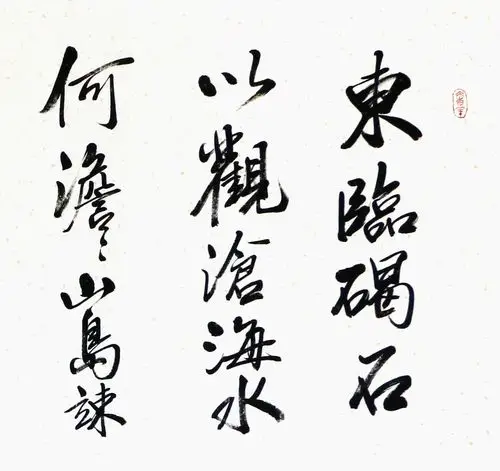 東臨碣石
以觀滄海水
何澹〻山島竦